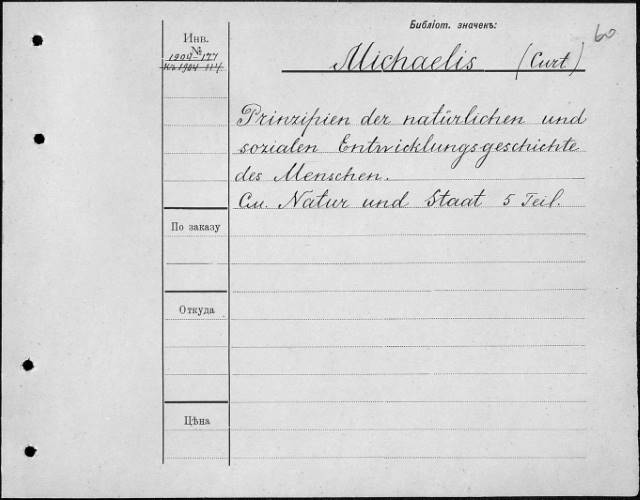 Библіот. значекъ:
60
Инв.
№
1904-177
Michaelis (Curt)
Prinzipien der natürlichen und
sozialen Entwicklungsgeschichte
des Menschen.
См. Natur und Staat 5 Teil.
По заказу
Откуда
Цѣна